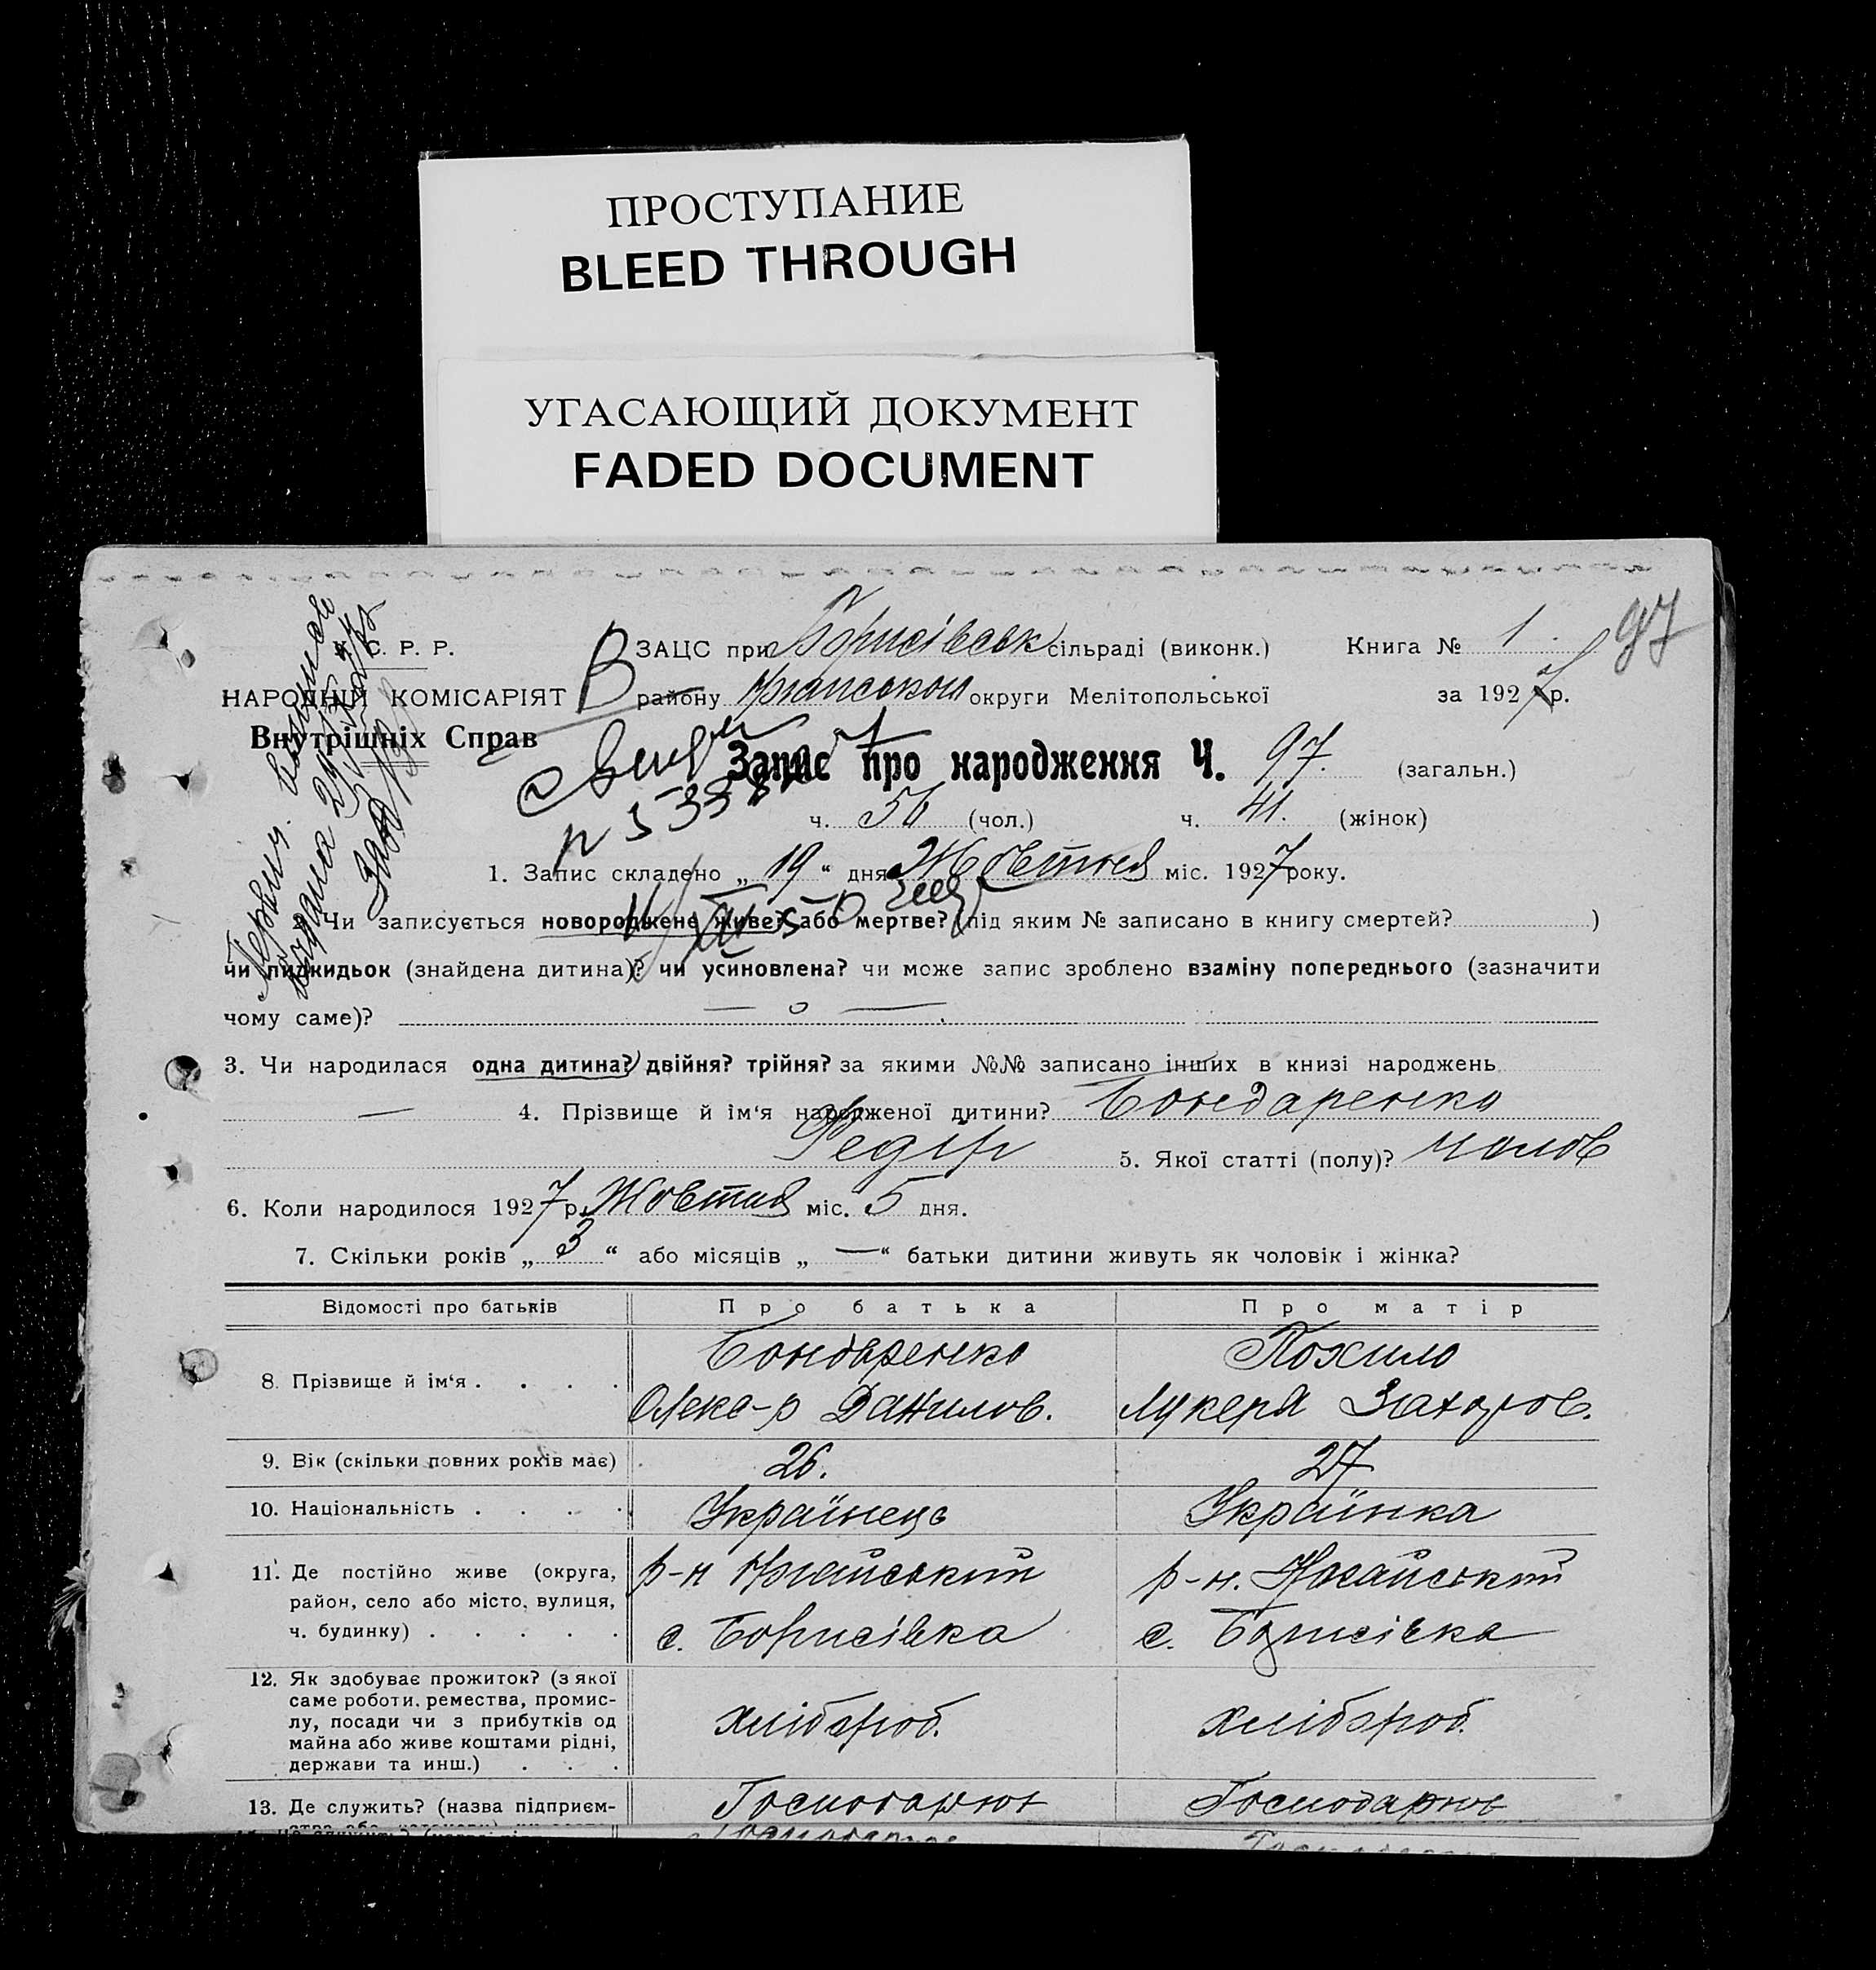 ПРОСТУПАНИЕ
BLEED THROUGH
УГАСАЮЩИЙ ДОКУМЕНТ
FADED DOCUMENT
У. С. Р. Р.
НАРОДНІЙ КОМІСАРІЯТ
Внутрішніх Справ
ЗАЦС при Борисівськ сільраді (виконк.)
району округи Мелітопольської
Книга № 1.
за 1927 р.
97
Запис про народження Ч. 97. (загальн.)
ч. 56 (чол.) ч. 41. (жінок)
1. Запис складено „ 19 “ дня Жовтня міс. 1927 року.
2. Чи записується новороджене живе? або мертве? (під яким № записано в книгу смертей? )
чи підкидьок (знайдена дитина)? чи усиновлена? чи може запис зроблено взаміну попереднього (зазначити
чому саме)? — о —
3. Чи народилася одна дитина? двійня? трійня? за якими №№ записано інших в книзі народжень
— 4. Прізвище й ім‘я народженої дитини? Бондаренко
Федір 5. Якої статті (полу)? чолов
6. Коли народилося 1927 р. Жовтня міс. 5 дня.
7. Скільки років „ 3 “ або місяців „ — “ батьки дитини живуть як чоловік і жінка?
Відомості про батьків Про батька Про матір
8. Прізвище й ім‘я . . . . Бондаренко Похило
Олекс-р Данилов. Лукеря Захаров.
9. Вік (скільки повних років має) 26. 27
10. Національність . . . . Українець Українка
11. Де постійно живе (округа, район, село або місто, вулиця, ч. будинку) . . . . .
р-н Ногайський р-н. Ногайський
с. Борисівка с. Борисівка
12. Як здобуває прожиток? (з якої
саме роботи, ремества, промис-
лу, посади чи з прибутків од
майна або живе коштами рідні,
держави та инш.) . . .
хлібороб. хлібороб.
13. Де служить? (назва підприєм- Господарює Господарює